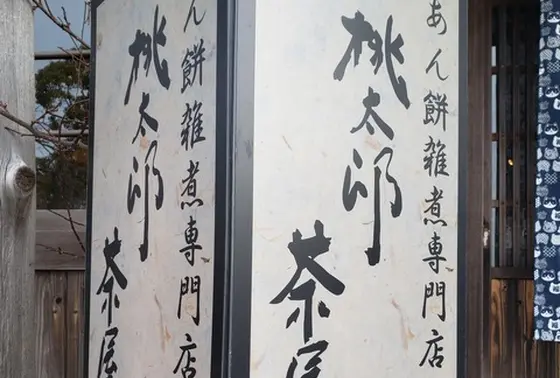 あん餅雑煮専門店
桃太郎
茶屋
ん餅雑煮専門店
桃太郎
茶屋